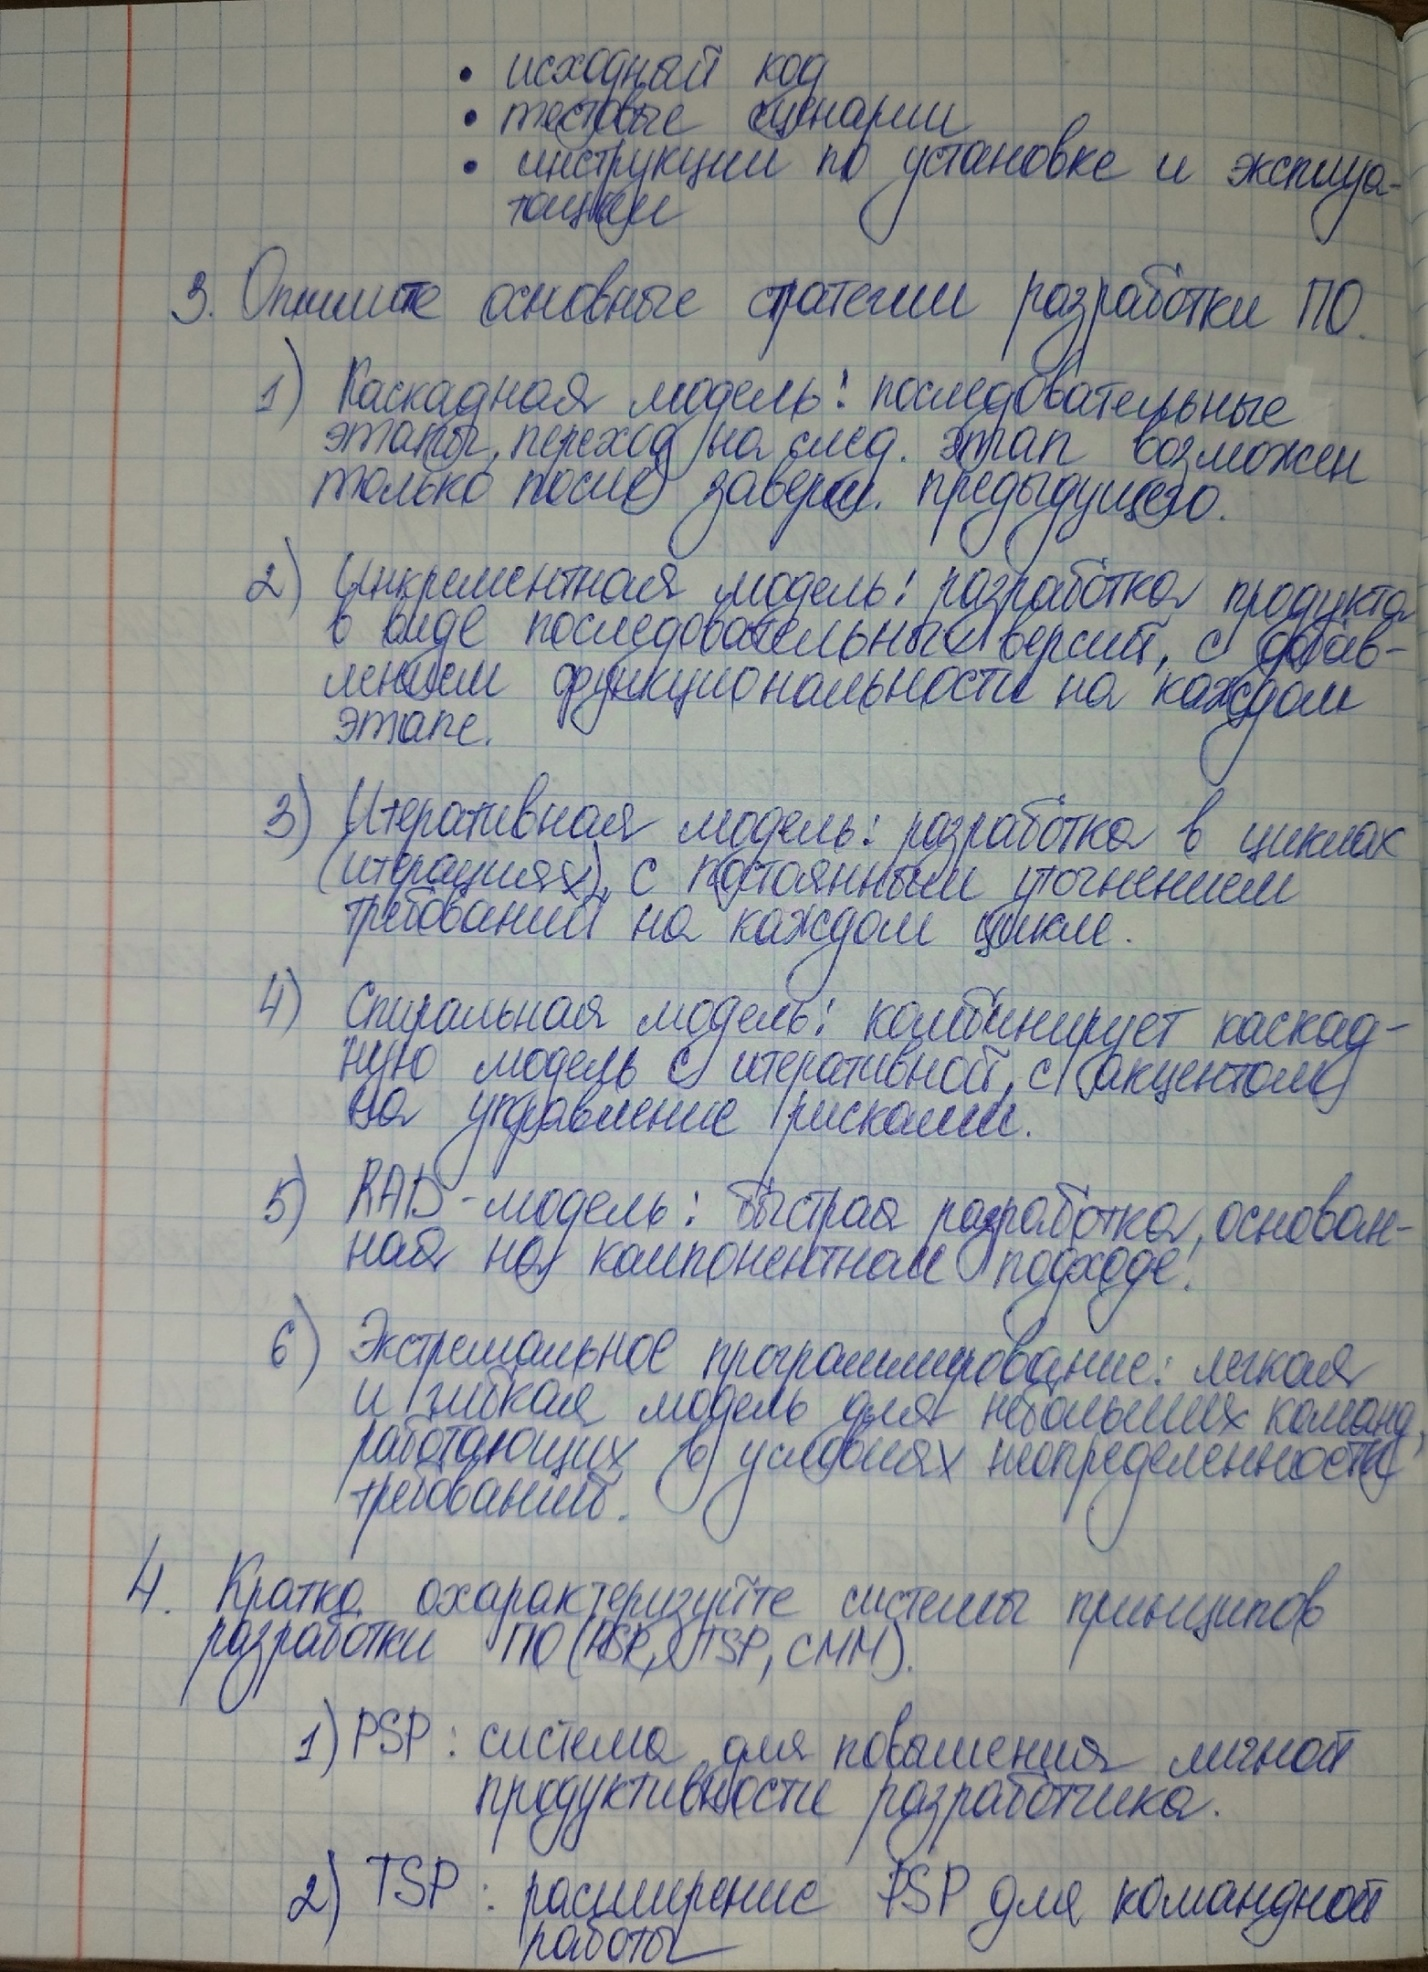 • исходный код
• тестовые сценарии
• инструкции по установке и эксплуа-
тации
3. Опишите основные стратегии разработки ПО.
1) Каскадная модель: последовательные
этапы, переход на след. этап возможен
только после заверш. предыдущего.
2) Инкрементная модель: разработка продукта
в виде последовательных версий, с добав-
лением функциональности на каждом
этапе.
3) Итеративная модель: разработка в циклах
(итерациях), с постоянным уточнением
требований на каждом цикле.
4) Спиральная модель: комбинирует каскад-
ную модель с итеративной, с акцентом
на управление рисками.
5) RAD-модель: быстрая разработка, основан-
ная на компонентном подходе.
6) Экстремальное программирование: легкая
и гибкая модель для небольших команд,
работающих в условиях неопределенности
требований.
4. Кратко охарактеризуйте системы принципов
разработки ПО (PSP, TSP, CMM).
1) PSP: система для повышения личной
продуктивности разработчика.
2) TSP: расширение PSP для командной
работы